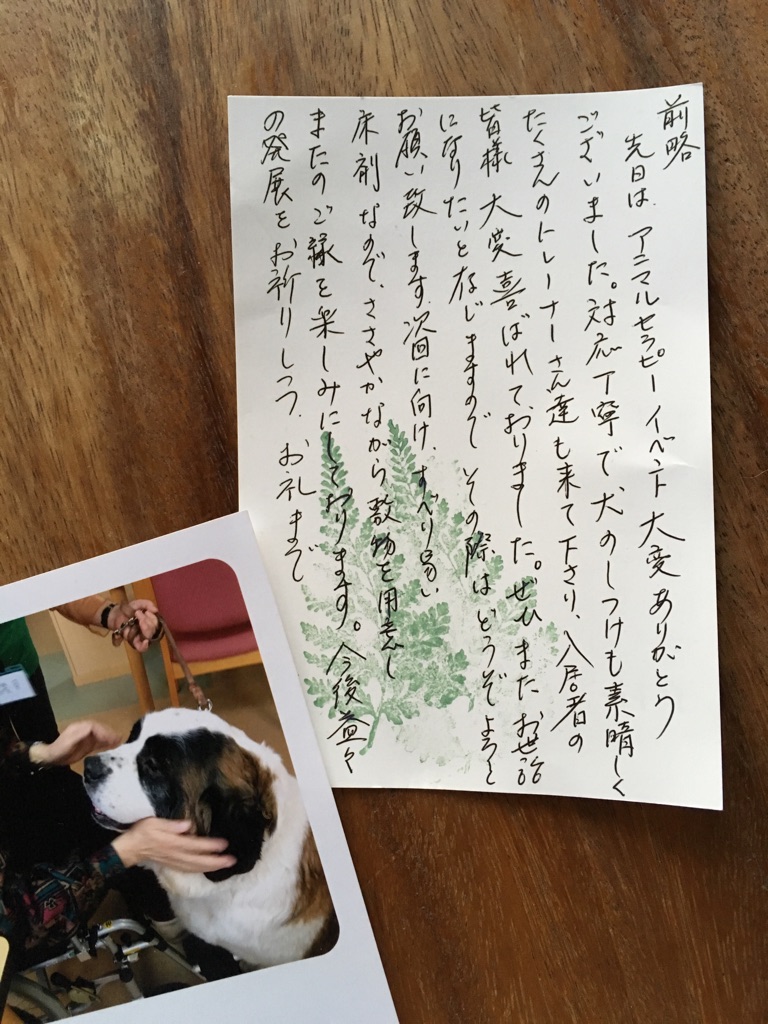 前略
先日は、アニマルセラピーイベント大変ありがとう
ございました。対応丁寧で犬のしつけも素晴しく
たくさんのトレーナーさん達も来て下さり、入居者の
皆様大変喜ばれておりました。ぜひまたお世話
になりたいと存じますので その際はどうぞよろしく
お願い致します、次回に向け、すべり易い
床剤なので、ささやかながら敷物を用意し
またのご縁を楽しみにしております。今後益々
の発展をお祈りしつつ、お礼まで